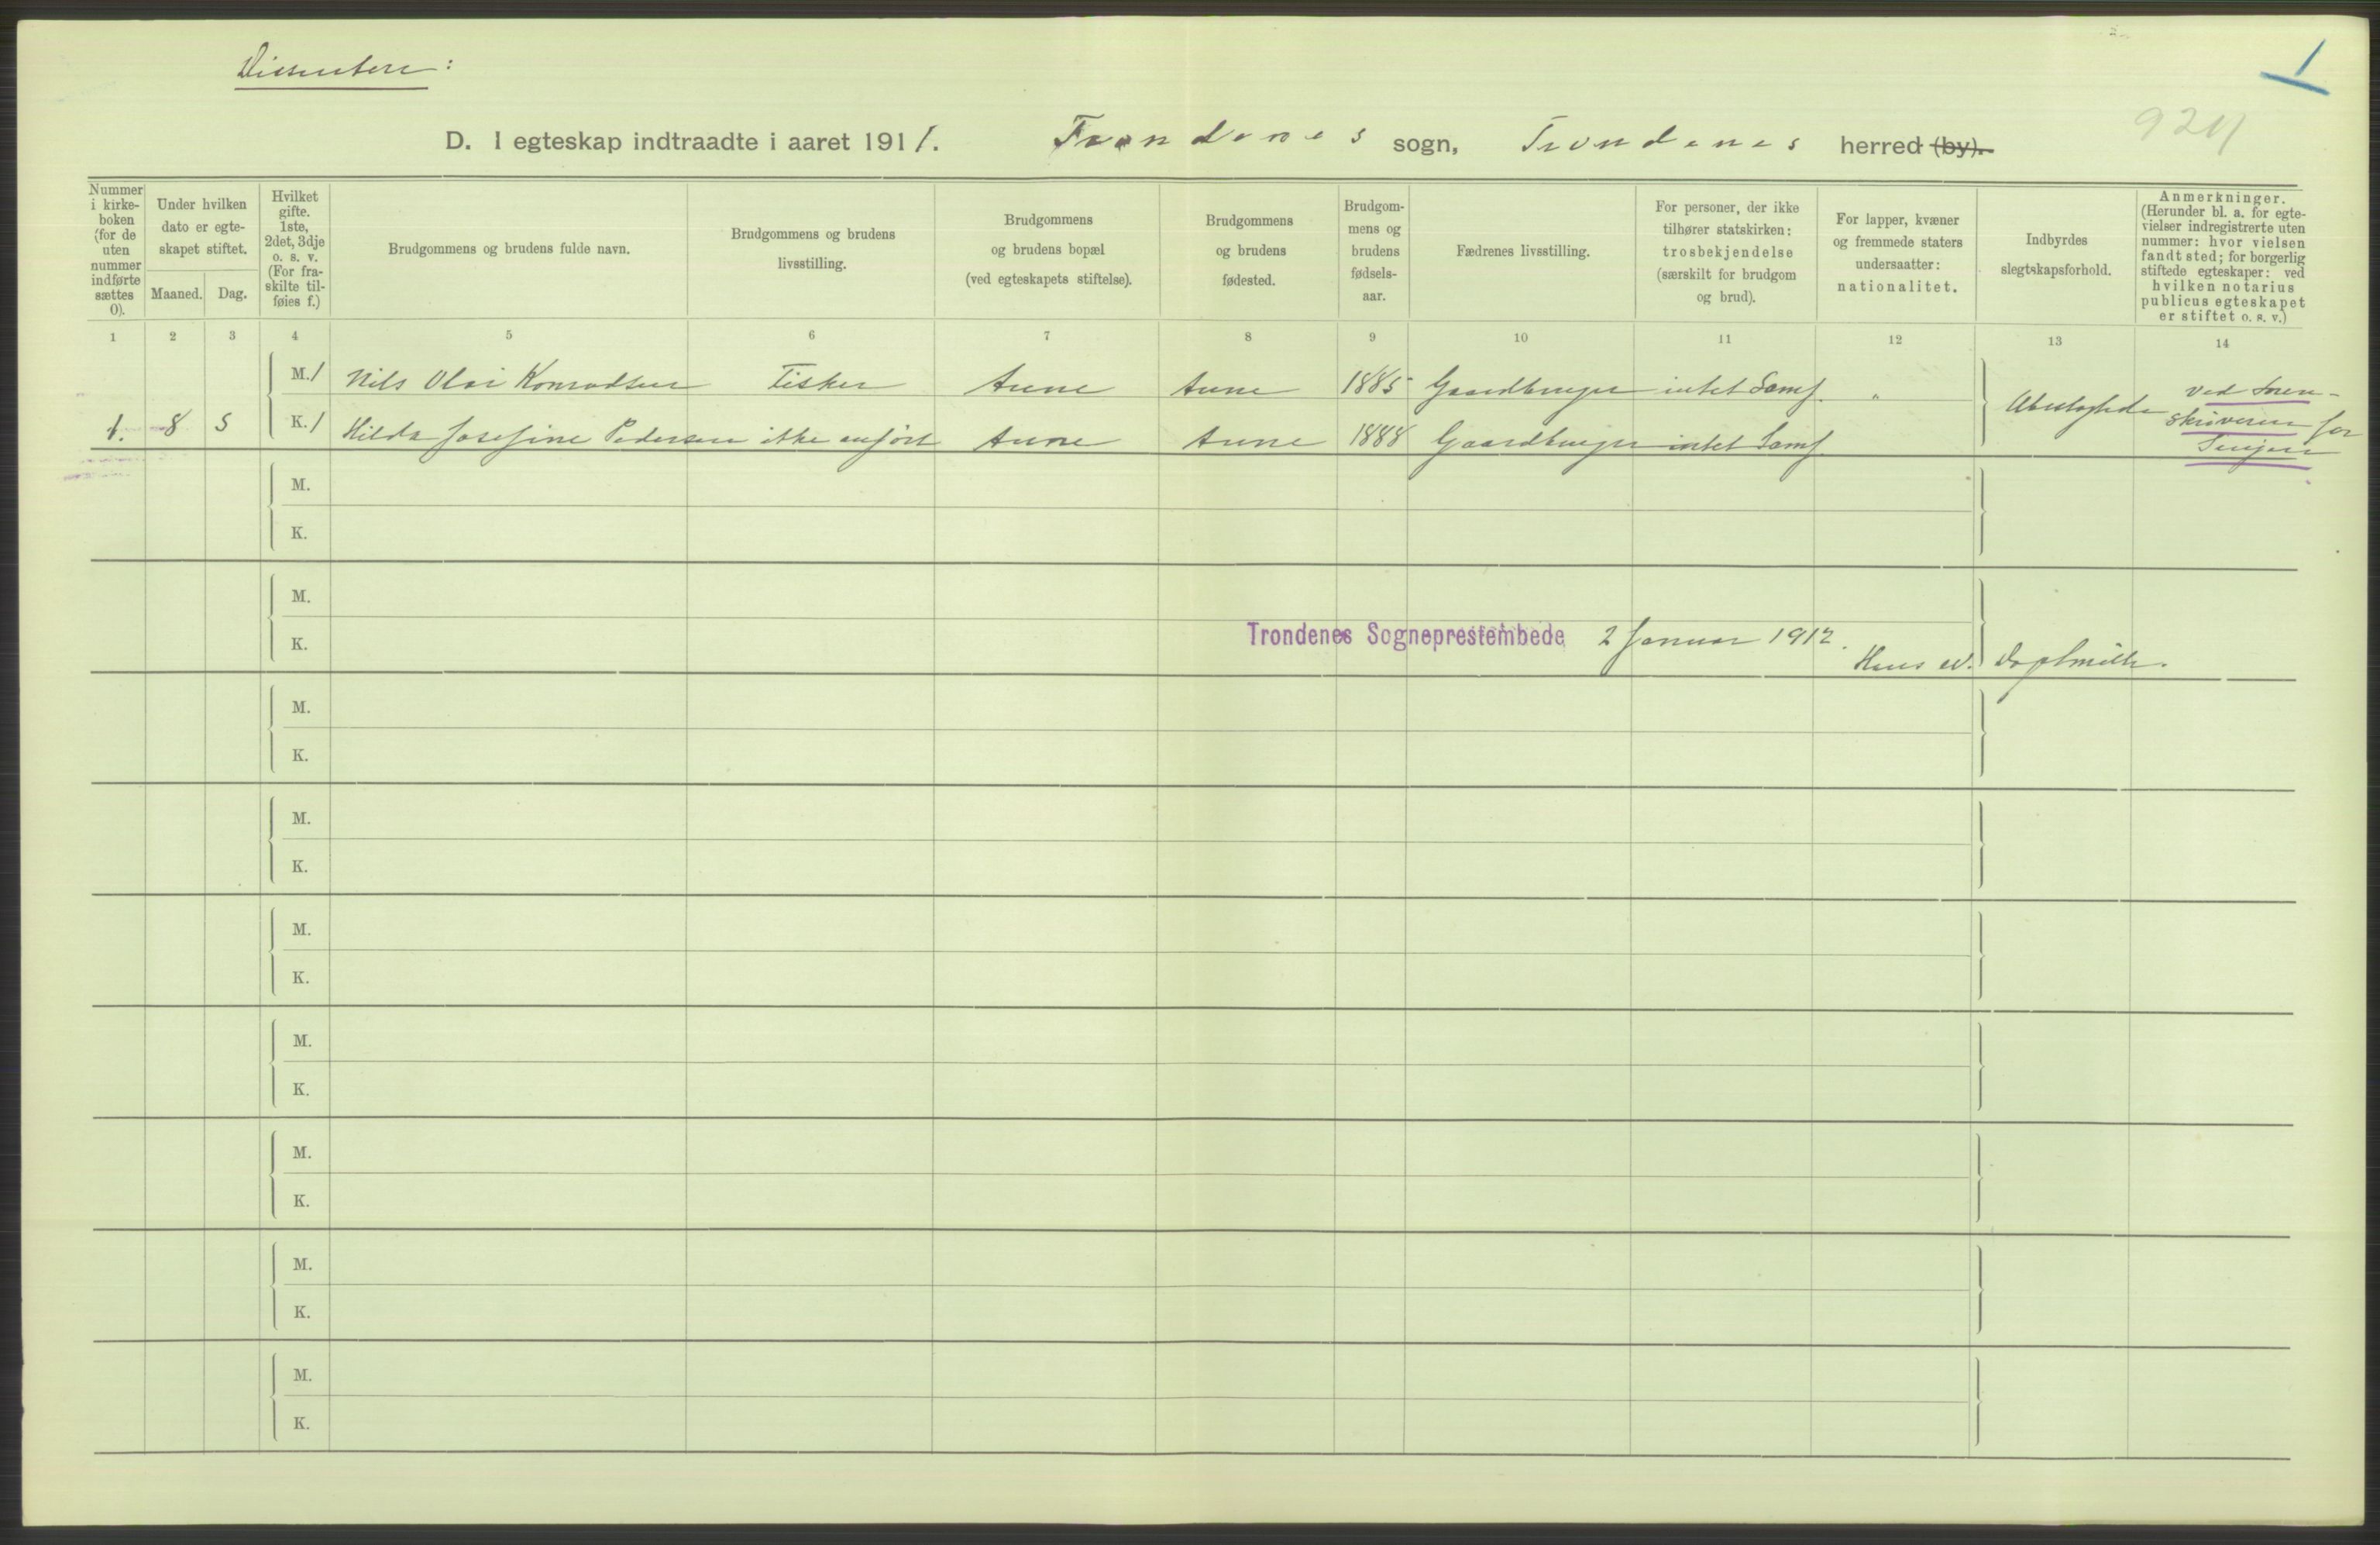 Dissentere:
1
9211
D. I egteskap indtraadte i aaret 1911. Trondenes sogn, Trondenes herred (by).
Nummer i kirke-boken (for de uten nummer indførte sættes 0).
Under hvilken dato er egte-skapet stiftet.
Maaned. Dag.
Hvilket gifte. 1ste, 2det, 3dje o. s. v. (For fra-skilte til-føies f.)
Brudgommens og brudens fulde navn.
Brudgommens og brudens livsstilling.
Brudgommens og brudens bopæl (ved egteskapets stiftelse).
Brudgommens og brudens fødested.
Brudgom-mens og brudens fødsels-aar.
Fædrenes livsstilling.
For personer, der ikke tilhører statskirken: trosbekjendelse (særskilt for brudgom og brud).
For lapper, kvæner og fremmede staters undersaatter: nationalitet.
Indbyrdes slegtskapsforhold.
Anmerkninger. (Herunder bl. a. for egte-vielser indregistrerte uten nummer: hvor vielsen fandt sted; for borgerlig stiftede egteskaper: ved hvilken notarius publicus egteskapet er stiftet o. s. v.)
1 2 3 4 5 6 7 8 9 10 11 12 13 14
M. 1 Nils Olai Konradsen Fisker Aune Aune 1885 Gaardbruger intet Samf. "
1. 8 5 K. 1 Hilda Josefine Pedersen ikke anført Aune Aune 1888 Gaardbruger intet Samf.
Ubeslægtede
ved Soren-
skriveren for
Senjen
M.
K.
M.
K.
Trondenes Sogneprestembede 2 Januar 1912.
Hans
M.
K.
M.
K.
M.
K.
M.
K.
M.
K.
M.
K.
M.
K.